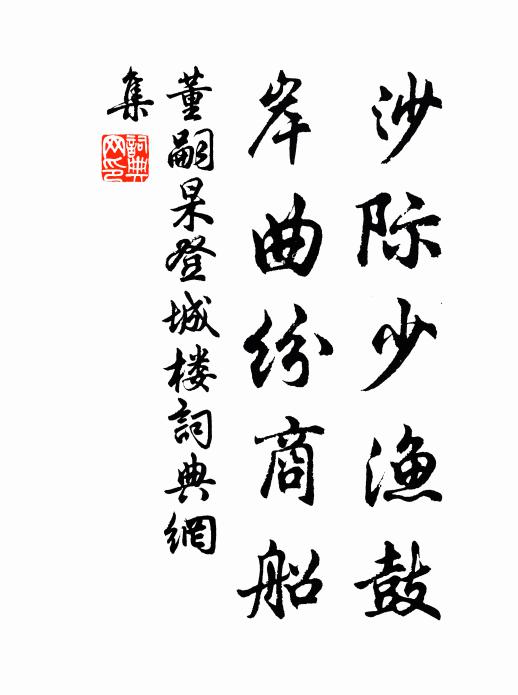 沙际少渔鼓
岸曲纷商船
董嗣杲登城楼詞典網
集
詞典网印